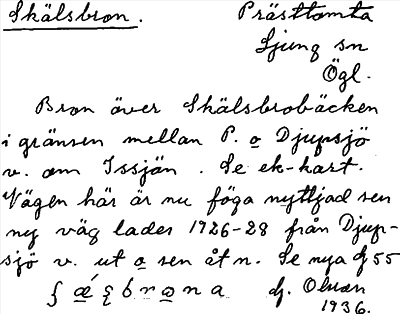 Skälsbron. Prästtomta
Ljung sn
Ögl.
Bron över Skälsbrobäcken
i gränsen mellan P. o Djupsjö
v. om Issjön. Se ek-kart.
Vägen här är nu föga nyttjad sen
ny väg lades 1926-28 från Djup-
sjö v. ut o sen åt n. Se nya gj 55
gj. Olson
1936.